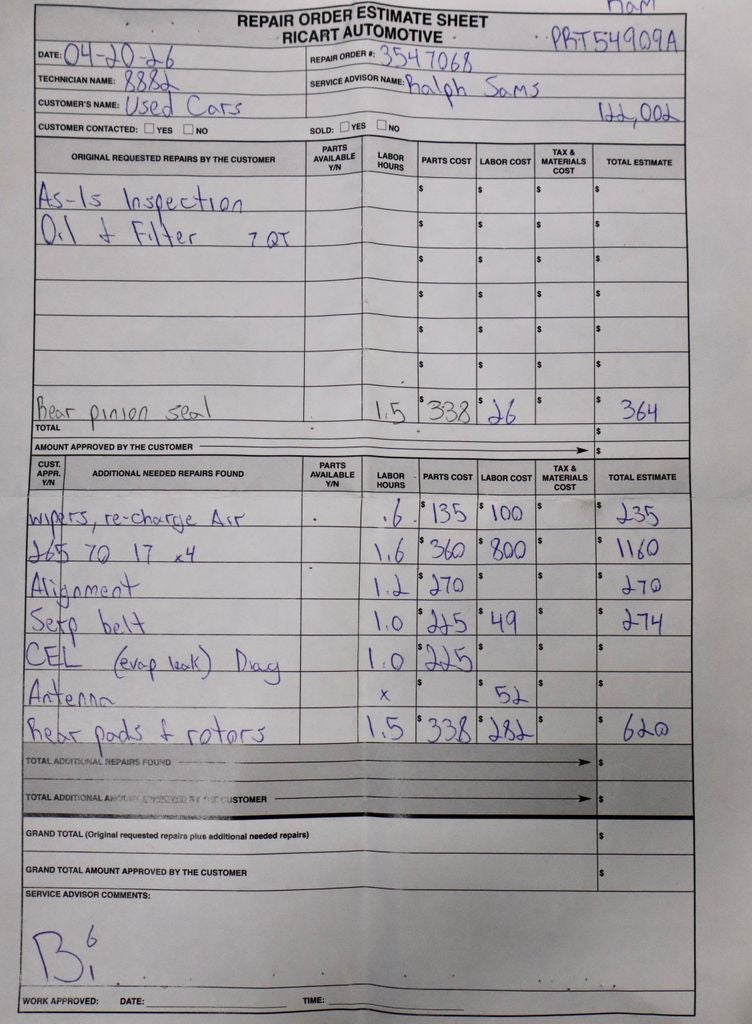 Ram
REPAIR ORDER ESTIMATE SHEET
RICART AUTOMOTIVE
PRT54909A
DATE: 04-20-26 REPAIR ORDER #: 3547068
TECHNICIAN NAME: 8882 SERVICE ADVISOR NAME: Ralph Sams
CUSTOMER'S NAME: Used Cars 122,002
CUSTOMER CONTACTED: YES NO SOLD: YES NO
ORIGINAL REQUESTED REPAIRS BY THE CUSTOMER PARTS AVAILABLE Y/N LABOR HOURS PARTS COST LABOR COST TAX & MATERIALS COST TOTAL ESTIMATE
As-Is Inspection $ $ $ $
Oil & Filter 7 QT $ $ $ $
$ $ $ $
$ $ $ $
$ $ $ $
$ $ $ $
Rear pinion seal 1.5 $ 338 $ 26 $ $ 364
TOTAL $
AMOUNT APPROVED BY THE CUSTOMER $
CUST. APPR. Y/N ADDITIONAL NEEDED REPAIRS FOUND PARTS AVAILABLE Y/N LABOR HOURS PARTS COST LABOR COST TAX & MATERIALS COST TOTAL ESTIMATE
wipers, re-charge Air .6 $ 135 $ 100 $ $ 235
265 70 17 x4 1.6 $ 360 $ 800 $ $ 1160
Alignment 1.2 $ 270 $ $ $ 270
Serp belt 1.0 $ 225 $ 49 $ $ 274
CEL (evap leak) Diag 1.0 $ 225 $ $ $
Antenna x $ $ 52 $ $
Rear pads & rotors 1.5 $ 338 $ 282 $ $ 620
TOTAL ADDITIONAL REPAIRS FOUND $
TOTAL ADDITIONAL AMOUNT APPROVED BY THE CUSTOMER $
GRAND TOTAL (Original requested repairs plus additional needed repairs) $
GRAND TOTAL AMOUNT APPROVED BY THE CUSTOMER $
SERVICE ADVISOR COMMENTS:
B1 6
WORK APPROVED: DATE: TIME: